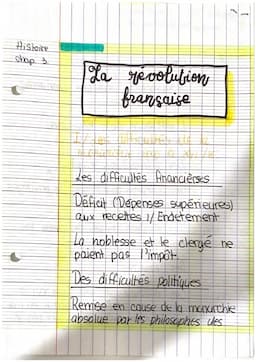 Histoire
chap 3.
La révolution
française
I/ Les difficultés de la
Les difficultés financières
Déficit (Dépenses supérieures)
aux recettes 1/ Endetement
La noblesse et le clergé ne
paient pas l'impôt.
Des difficultés politiques
Remise en cause de la monarchie
absolue par les philosophes des